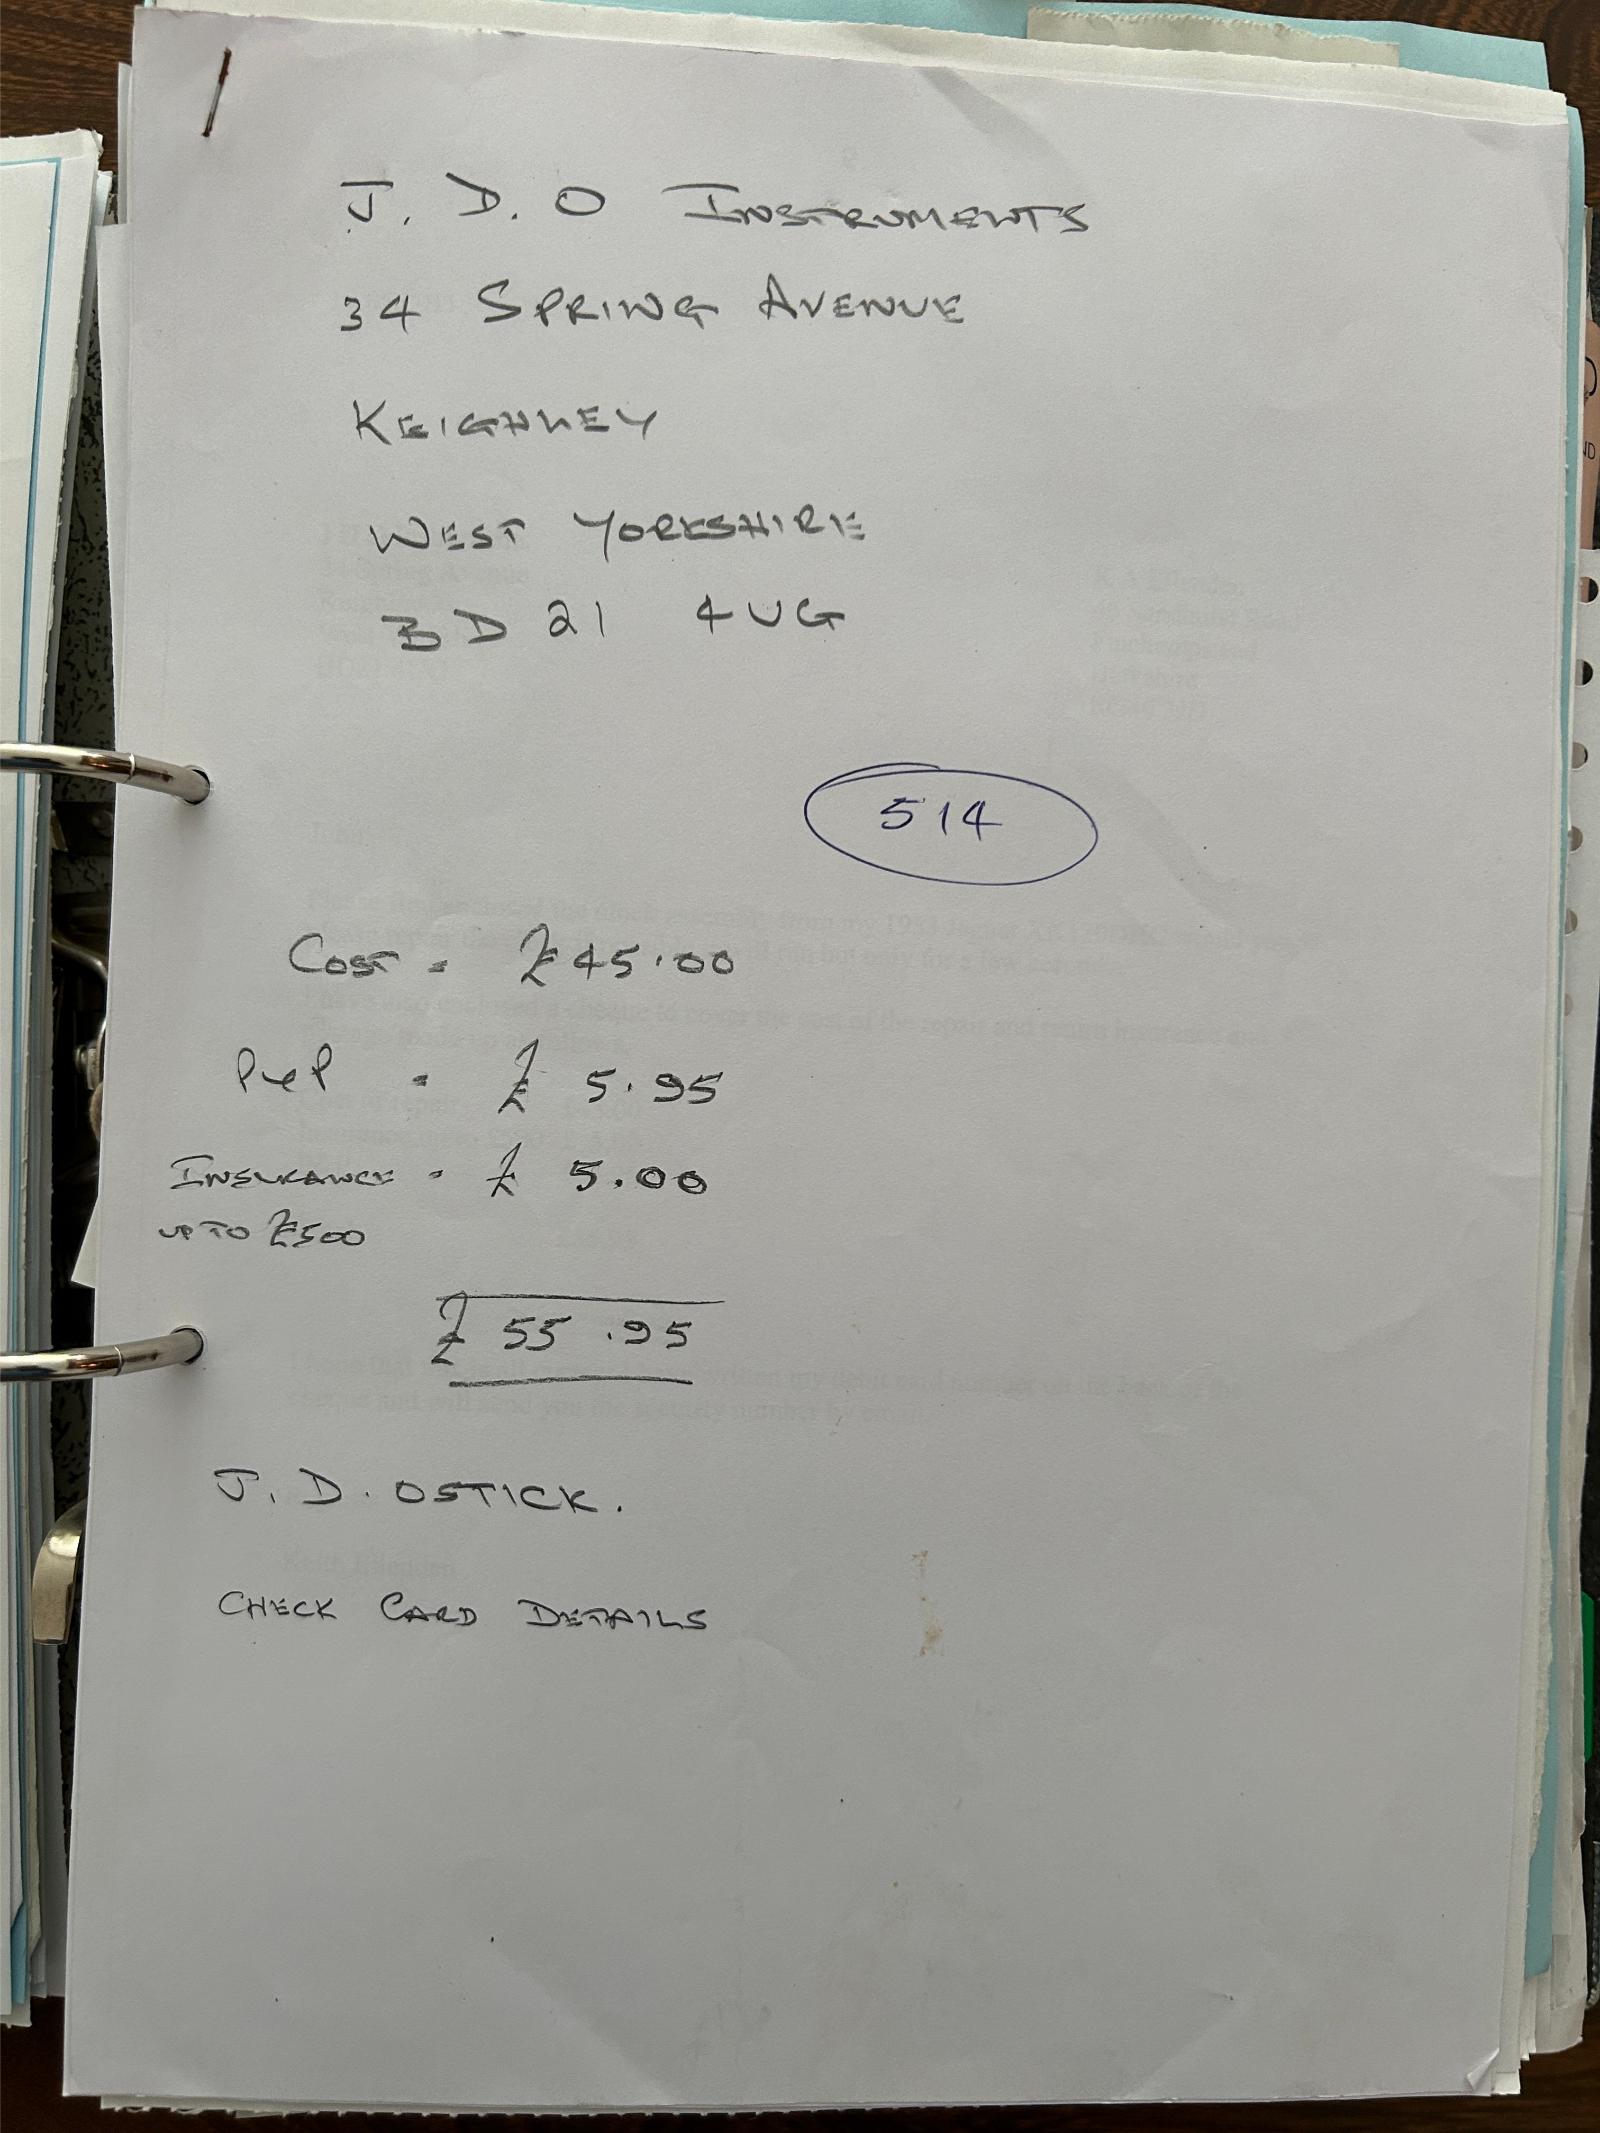 J. D. O INSTRUMENTS
34 SPRING AVENUE
KEIGHLEY
WEST YORKSHIRE
BD21 4UG
514
COST = £45.00
P&P = £ 5.95
INSURANCE = £ 5.00
UP TO £500
£ 55.95
J. D. OSTICK.
CHECK CARD DETAILS